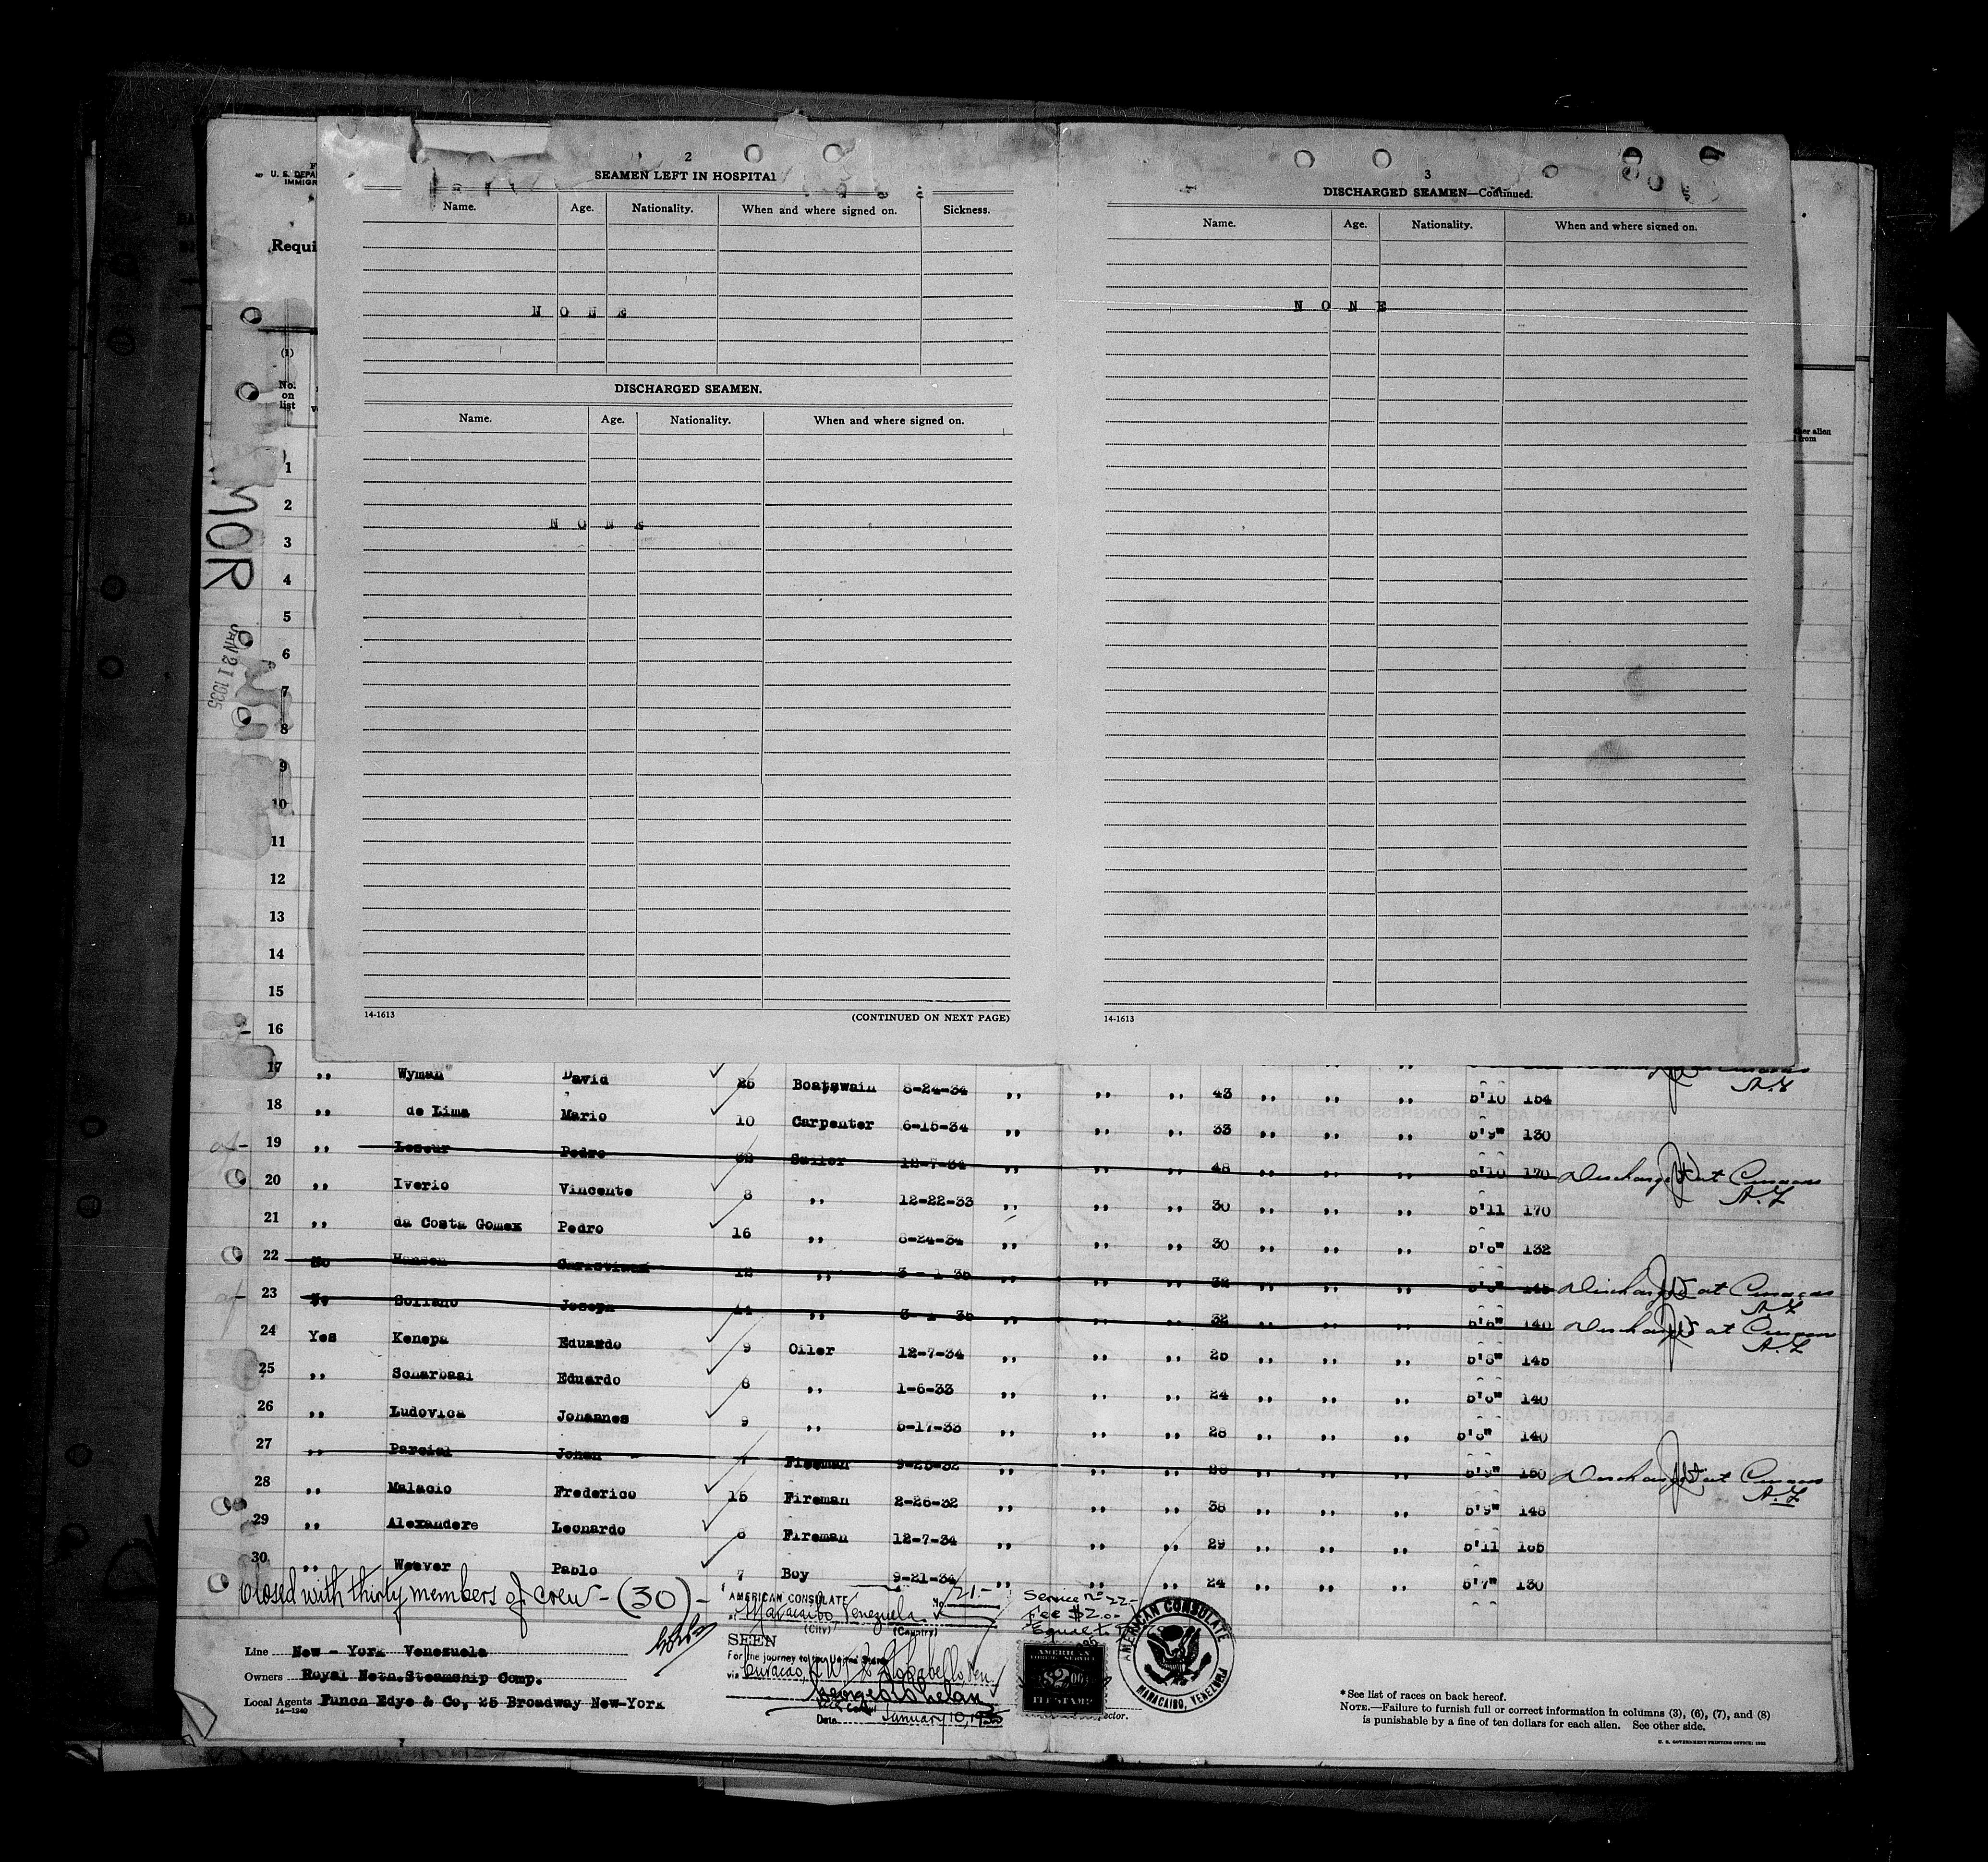 2
SEAMEN LEFT IN HOSPITAL
Name. Age. Nationality. When and where signed on. Sickness.
N O N E
DISCHARGED SEAMEN.
Name. Age. Nationality. When and where signed on.
N O N E
14-1613 (CONTINUED ON NEXT PAGE)
3
DISCHARGED SEAMEN—Continued.
Name. Age. Nationality. When and where signed on.
N O N E
14-1613
U. S. DEPA
IMMIGR
Requi
(1)
No.
on
list
MOR
JAN 21 1935
1
2
3
4
5
6
7
8
9
10
11
12
13
14
15
16
17 ,, Wyman David 25 Boatswain 8-24-34 ,, ,, ,, 43 ,, ,, ,, 5'10 154
18 ,, de Lima Mario 10 Carpenter 6-15-34 ,, ,, ,, 33 ,, ,, ,, 5'9" 130
19 ,, Leseur Pedro 32 Sailor 12-7-34 ,, ,, ,, 48 ,, ,, ,, 5'10 170 Discharged at Curacao
20 ,, Iverio Vincente 8 ,, 12-22-33 ,, ,, ,, 30 ,, ,, ,, 5'11 170
21 ,, da Costa Gomez Pedro 16 ,, 8-24-34 ,, ,, ,, 30 ,, ,, ,, 5'6" 132
22 No Hansen Christiaan 12 ,, 3-1-35 ,, ,, ,, 32 ,, ,, ,, 145 Discharged at Curacao
23 No Soliano Joseph 14 ,, 3-1-35 ,, ,, ,, 32 ,, ,, ,, 5'6" 140 Discharged at Curacao
24 Yes Kenepa Eduardo 9 Oiler 12-7-34 ,, ,, ,, 25 ,, ,, ,, 5'8" 145
25 ,, Scharbaai Eduardo 8 ,, 1-6-33 ,, ,, ,, 24 ,, ,, ,, 5'6" 140
26 ,, Ludovica Johannes 9 ,, 5-17-33 ,, ,, ,, 28 ,, ,, ,, 5'6" 140
27 ,, Parcial Johan Fireman 9-25-32 ,, ,, ,, 26 ,, ,, ,, 5'9" 150 Discharged at Curacao
28 ,, Malacio Frederico 15 Fireman 2-26-32 ,, ,, ,, 38 ,, ,, ,, 5'9" 148
29 ,, Alexandere Leonardo 6 Fireman 12-7-34 ,, ,, ,, 29 ,, ,, ,, 5'11 165
30 ,, Weever Pablo 7 Boy 9-21-34 ,, ,, ,, 24 ,, ,, ,, 5'7" 130
Closed with thirty members of crew - (30) -
AMERICAN CONSULATE No. 21.-
at Maracaibo, Venezuela
(City) (Country)
SEEN
For the journey to the United States
via Curacao,
Date January 10, 1935
Service No 22-
Fee $2.0-
Equal to
AMERICAN
FOREIGN SERVICE
$2.00
FEE STAMP
AMERICAN CONSULATE
MARACAIBO, VENEZUELA
Line New - York Venezuela
Owners Royal Neth. Steamship Comp.
Local Agents Funch Edye & Co, 25 Broadway New-York
14—1240
*See list of races on back hereof.
NOTE.—Failure to furnish full or correct information in columns (3), (6), (7), and (8)
is punishable by a fine of ten dollars for each alien. See other side.